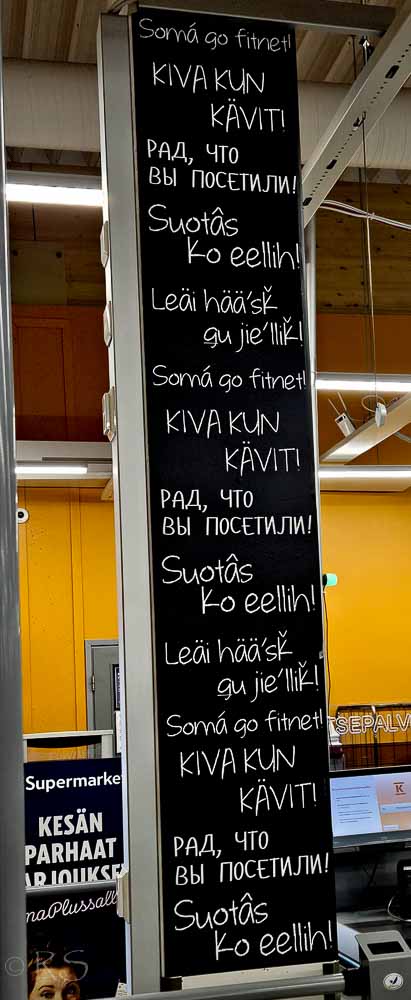 Somá go fitnet!
KIVA KUN
KÄVIT!
РАД, ЧТО
ВЫ ПОСЕТИЛИ!
Suotâs
Ko eellih!
Leäi hääʹsǩ
gu jieʹlliǩ!
Somá go fitnet!
KIVA KUN
KÄVIT!
РАД, ЧТО
ВЫ ПОСЕТИЛИ!
Suotâs
Ko eellih!
Leäi hääʹsǩ
gu jieʹlliǩ!
Somá go fitnet!
KIVA KUN
KÄVIT!
РАД, ЧТО
ВЫ ПОСЕТИЛИ!
Suotâs
Ko eellih!
TSEPALV
Supermarke
KESÄN
PARHAAT
ARJOUKSE
maPlussall
K
© R S